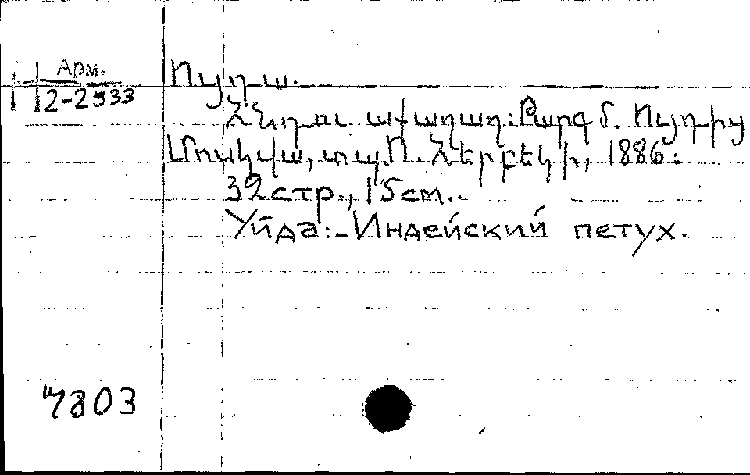 Арм.
12-2533
Ույդա.
Հնդու աքաղաղ: Թարգմ. Ույդից
Մոսկվա, տպ. Օ. Հերբեկի, 1886:
32 стр., 15 см.
Уйда:-Индейский петух.
7803